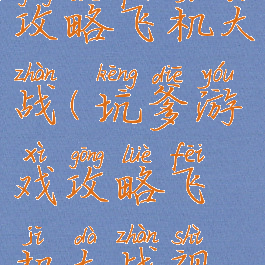 攻略飞机大
zhàn kēng diē yóu
战(坑爹游
xì gōng lüè fēi
戏攻略飞
jī dà zhàn shì
机大战视